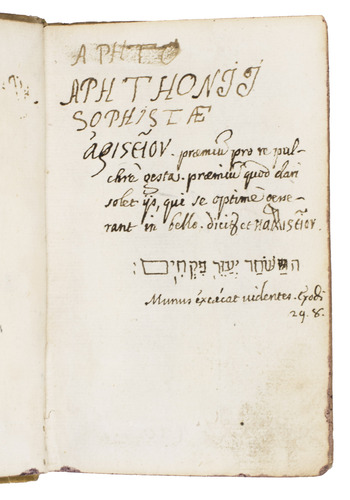 APHTO
APHTHONIJ
SOPHISTÆ
ἀριϛεῖον. præmiũ pro re pul-
chrè gesta. præmiũ quod dari
solet ijs, qui se optimè
rant in bello. et
השחד יעור פקחים:
Munus excæcat videntes. Exodi
8.